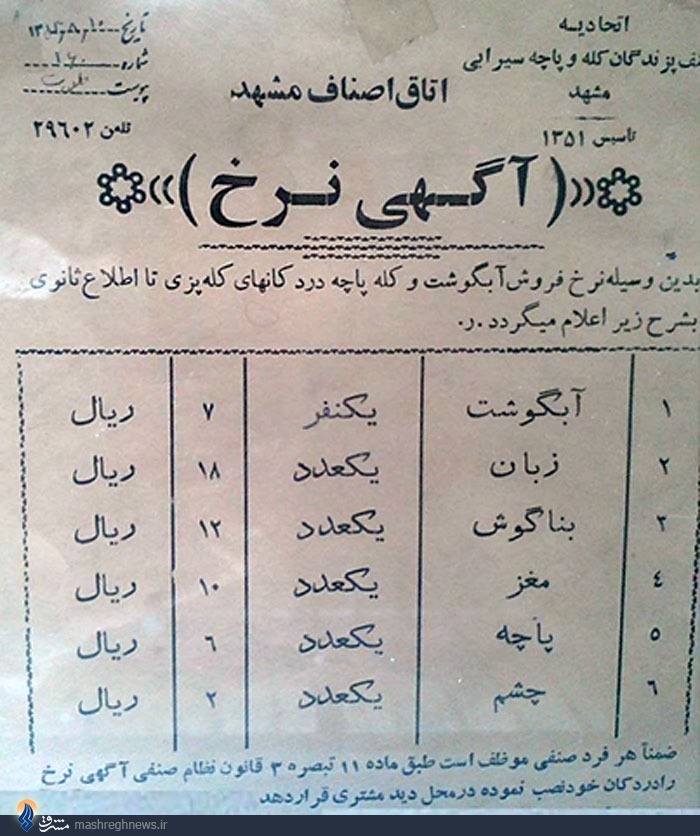 اتحادیه
صنف پزندگان کله و پاچه سیرابی
مشهد
تاسیس ۱۳۵۱
اتاق اصناف مشهد
تاریخ
شماره
پیوست
تلفن ۲۹۶۰۲
«(آگهی نرخ)»
بدین وسیله نرخ فروش آبگوشت و کله پاچه در دکانهای کله‌پزی تا اطلاع ثانوی
بشرح زیر اعلام میگردد.ر.
۱ آبگوشت یکنفر ۷ ریال
۲ زبان یکعدد ۱۸ ریال
۳ بناگوش یکعدد ۱۲ ریال
۴ مغز یکعدد ۱۰ ریال
۵ پاچه یکعدد ۶ ریال
۶ چشم یکعدد ۲ ریال
ضمناً هر فرد صنفی موظف است طبق ماده ۱۱ تبصره ۳ قانون نظام صنفی آگهی نرخ
را در دکان خود نصب نموده در محل دید مشتری قرار دهد
مشرق mashreghnews.ir